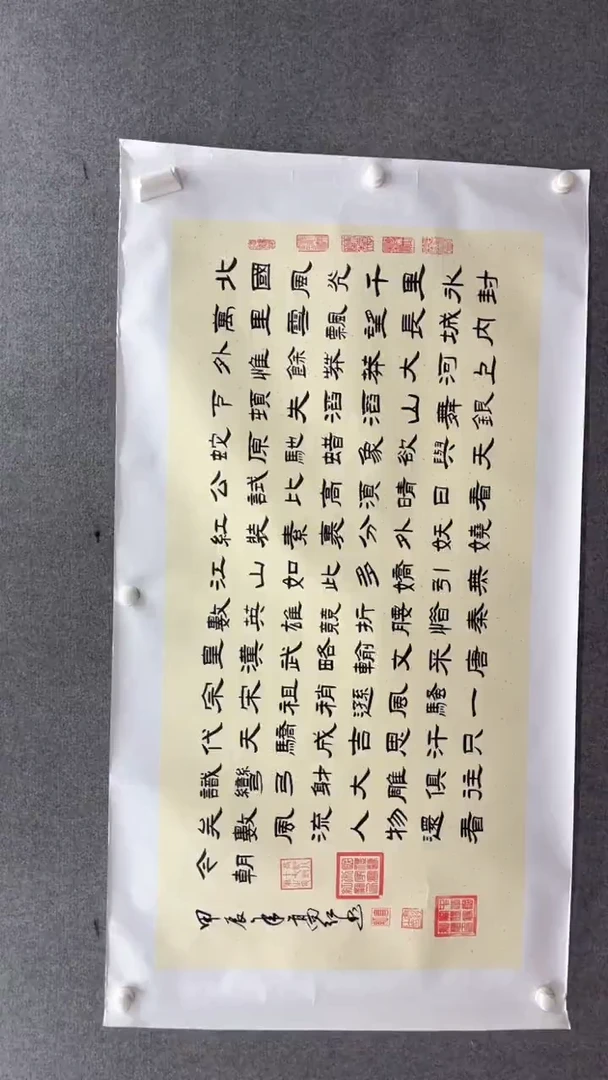 北國風光千里氷封
萬里雪飄望長城内
外惟餘莽莽大河上
下頓失滔滔山舞銀
蛇原馳蜡象欲與天
公試比高須晴日看
紅裝素裹分外妖嬈
江山如此多嬌引無
數英雄競折腰惜秦
皇漢武略輸文采唐
宗宋祖稍遜風騷一
代天驕成吉思汗只
識彎弓射大雕俱往
矣數風流人物還看
今朝
甲辰年高红书